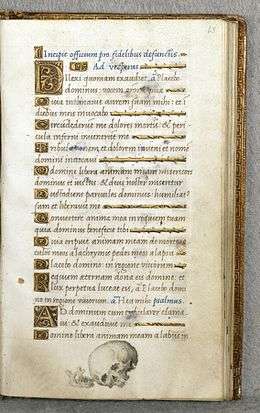 Incipit officium pro fidelibus defunctis.
Ad vesperas
Dilexi quoniam exaudiet, a Placebo
dominus: vocem orationis mee
Quia inclinavit aurem suam mihi: et i
diebus meis invocabo
Circundederunt me dolores mortis: & peri
cula inferni invenerunt me
Tribulationem et dolorem inveni et nomen
domini invocavi
O domine libera animam meam misericors
dominus et iustus & deus noster miseretur
Custodiens parvulos dominus: humilia
sum et liberavit me
Convertere anima mea in requiem tuam
quia dominus benefecit tibi
Quia eripuit animam meam de morte: o
culos meos a lachrymis pedes meos a lapsu
Placebo domino: in regione vivorum
Requiem aeternam dona eis domine: et
lux perpetua luceat eis, a Placebo domi
no in regione vivorum. a Hei mihi psalmus.
AD dominum cum tribularer clama
vi: et exaudivit me
Domine libera animam meam a labiis in